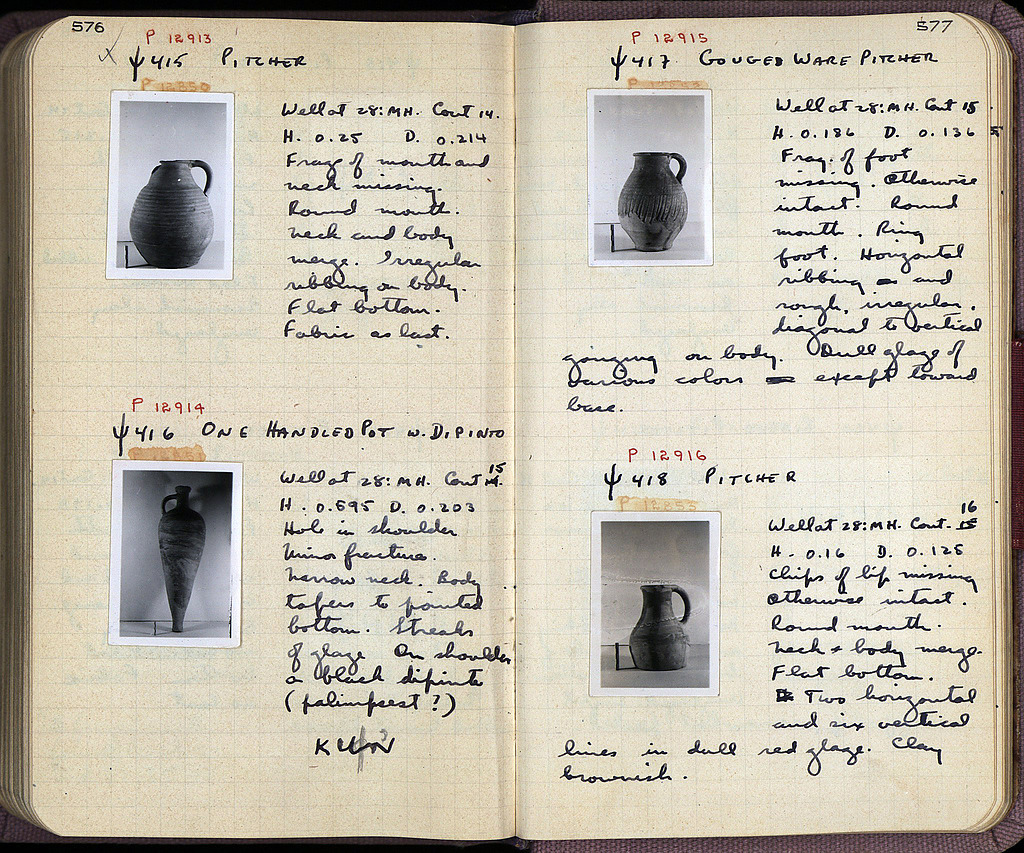 576
P 12913
ψ 415 PITCHER
Well at 28:MH. Cont 14.
H. 0.25 D. 0.214
Frags of mouth and
neck missing.
Round mouth.
Neck and body
merge. Irregular
ribbing on body.
Flat bottom.
Fabric as last.
P 12914
ψ 416 ONE HANDLED POT W. DIPINTO
15
Well at 28:MH. Cont
H. 0.595 D. 0.203
Hole in shoulder
Minor fracture.
Narrow neck. Body
tapers to pointed
bottom. Streaks
of glaze On shoulder
a black dipinto
(palimpsest?)
577
P 12915
ψ 417 GOUGED WARE PITCHER
Well at 28:MH. Cont 15
H. 0.186 D. 0.136
Frag. of foot
missing. Otherwise
intact. Round
mouth. Ring
foot. Horizontal
ribbing and
rough, irregular,
diagonal to vertical
gouging on body. Dull glaze of
various colors except toward
base.
P 12916
ψ 418 PITCHER
P 12855
16
Well at 28:MH. Cont. 15
H. 0.16 D. 0.125
Chips of lip missing
otherwise intact.
Round mouth.
Neck + body merge.
Flat bottom.
Two horizontal
and six vertical
lines in dull red glaze. Clay
brownish.